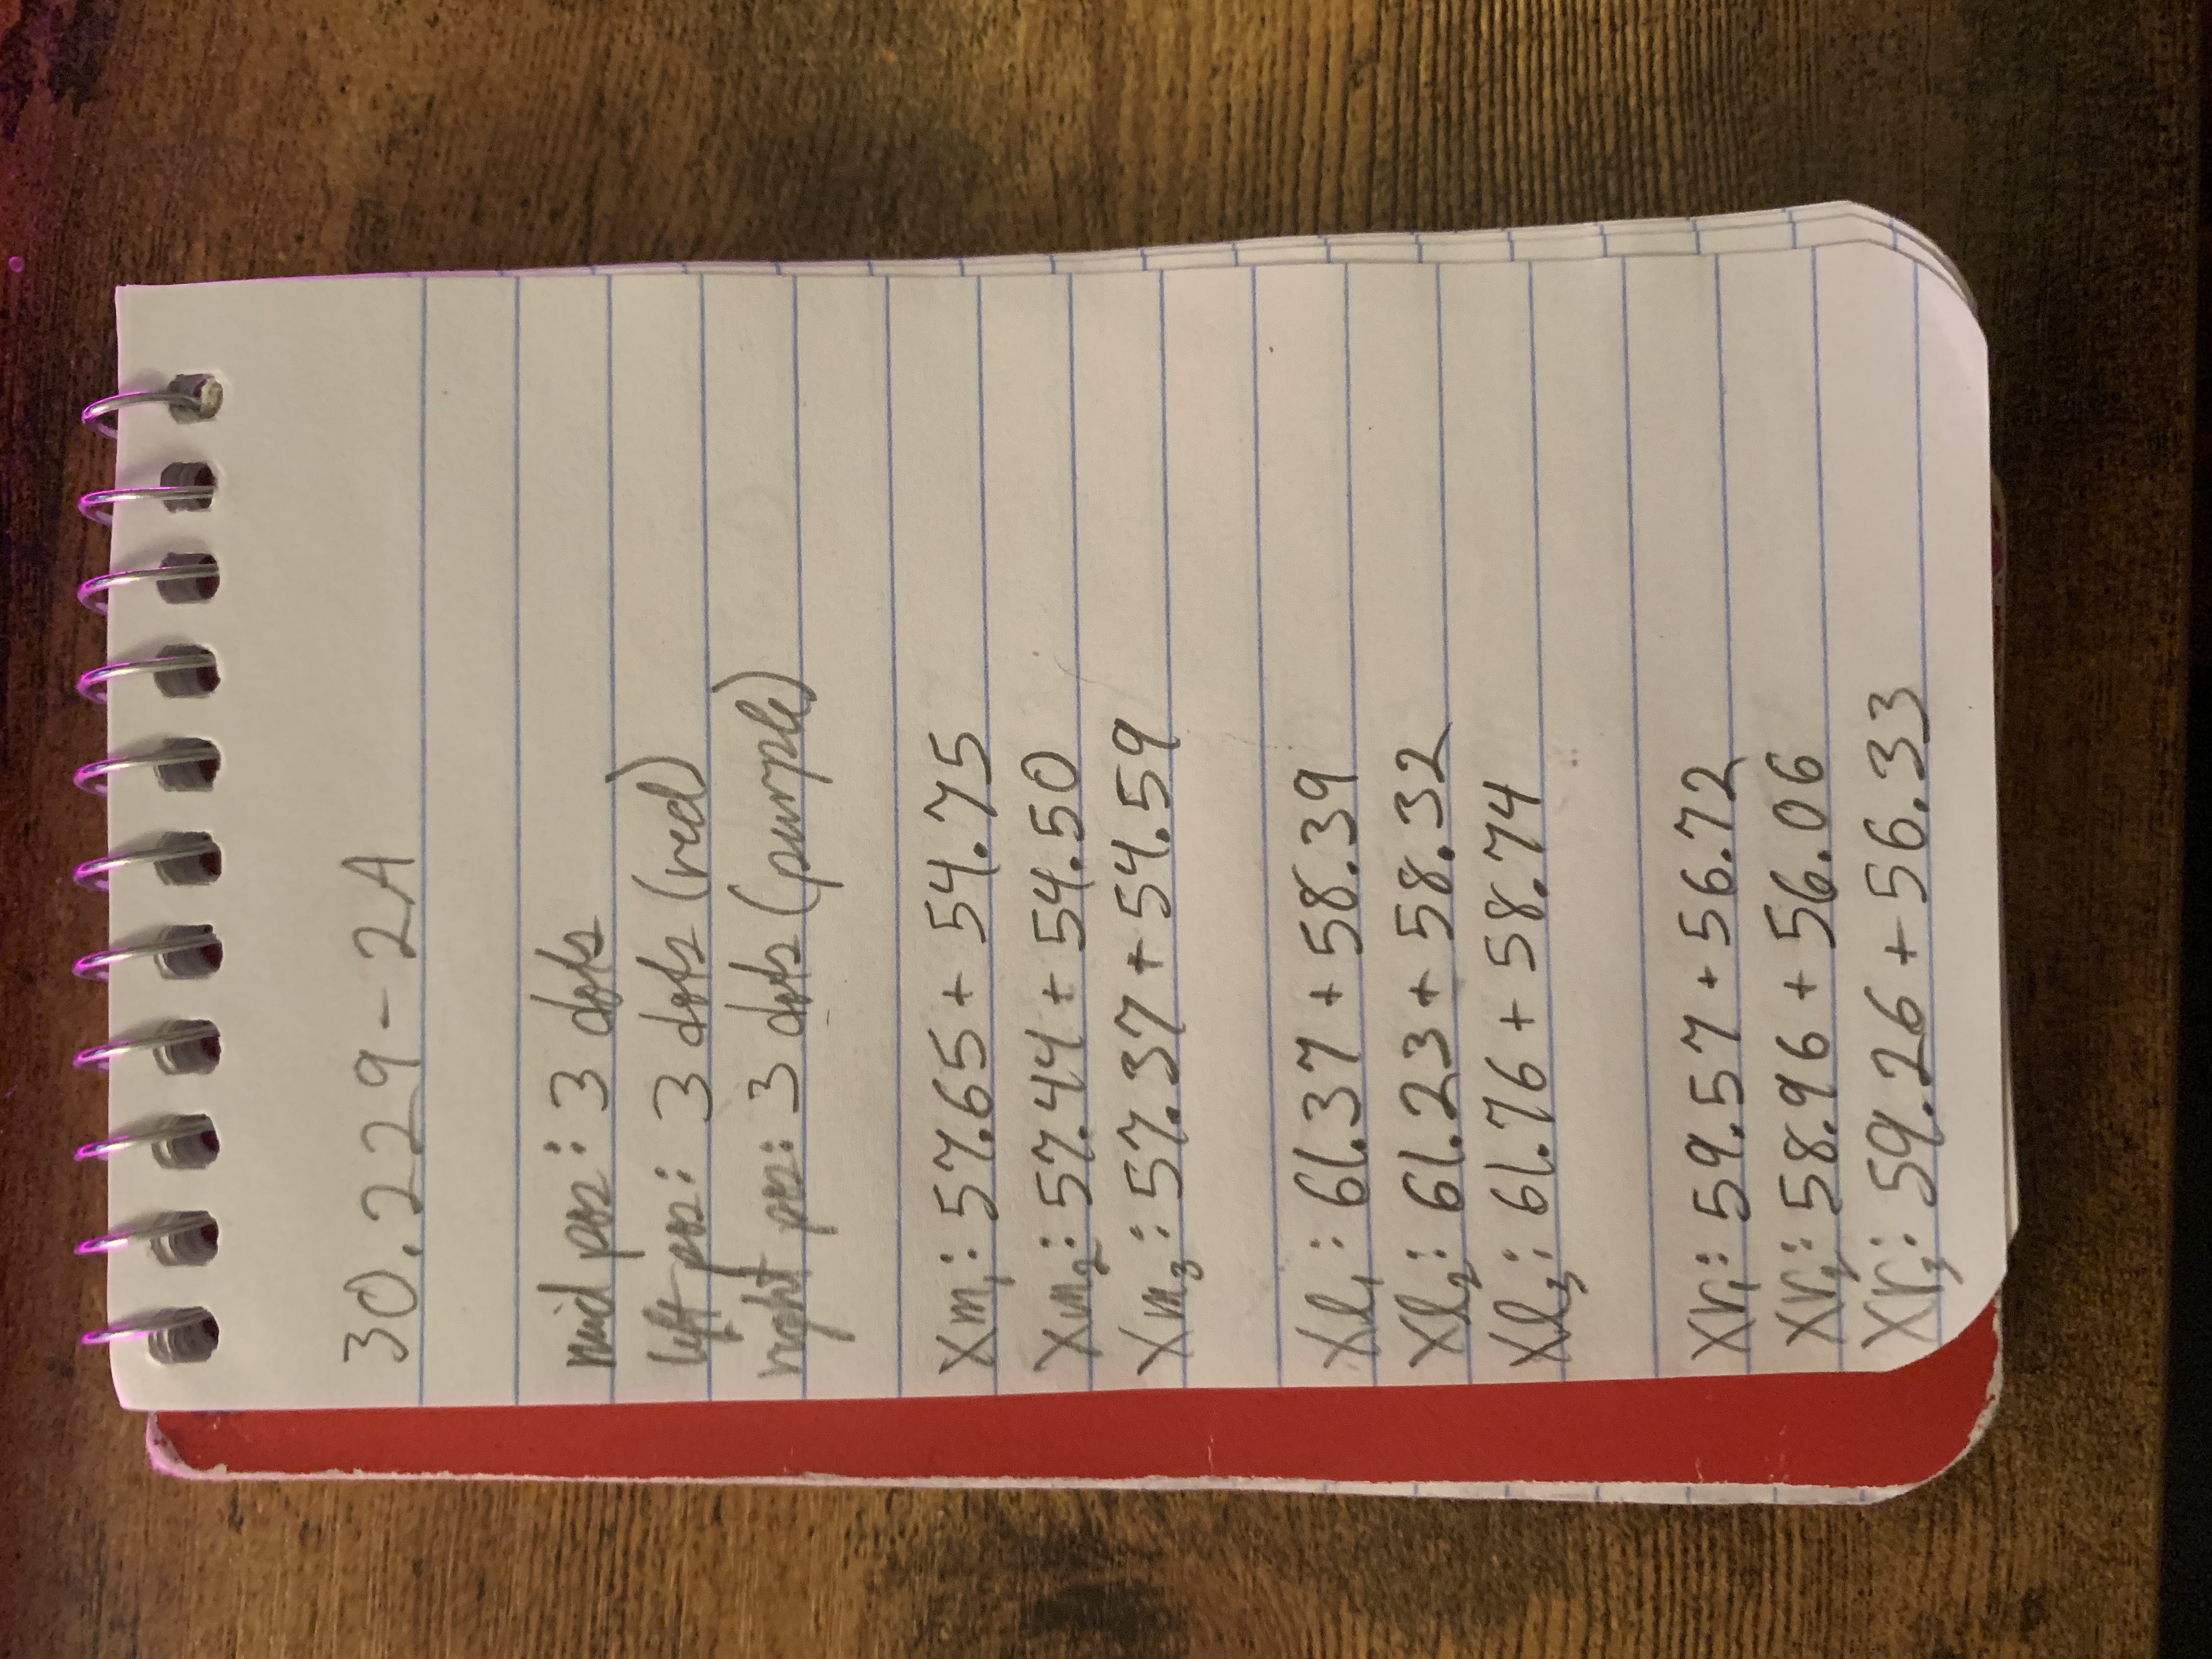 30.229-2A
mid pos: 3 dots
left pos: 3 dots (red)
right pos: 3 dots (purple)
Xm₁: 57.65 + 54.75
Xm₂: 57.44 + 54.50
Xm₃: 57.37 + 54.59
Xl₁: 61.37 + 58.39
Xl₂: 61.23 + 58.32
Xl₃: 61.76 + 58.74
Xr₁: 59.57 + 56.72
Xr₂: 58.96 + 56.06
Xr₃: 59.26 + 56.33